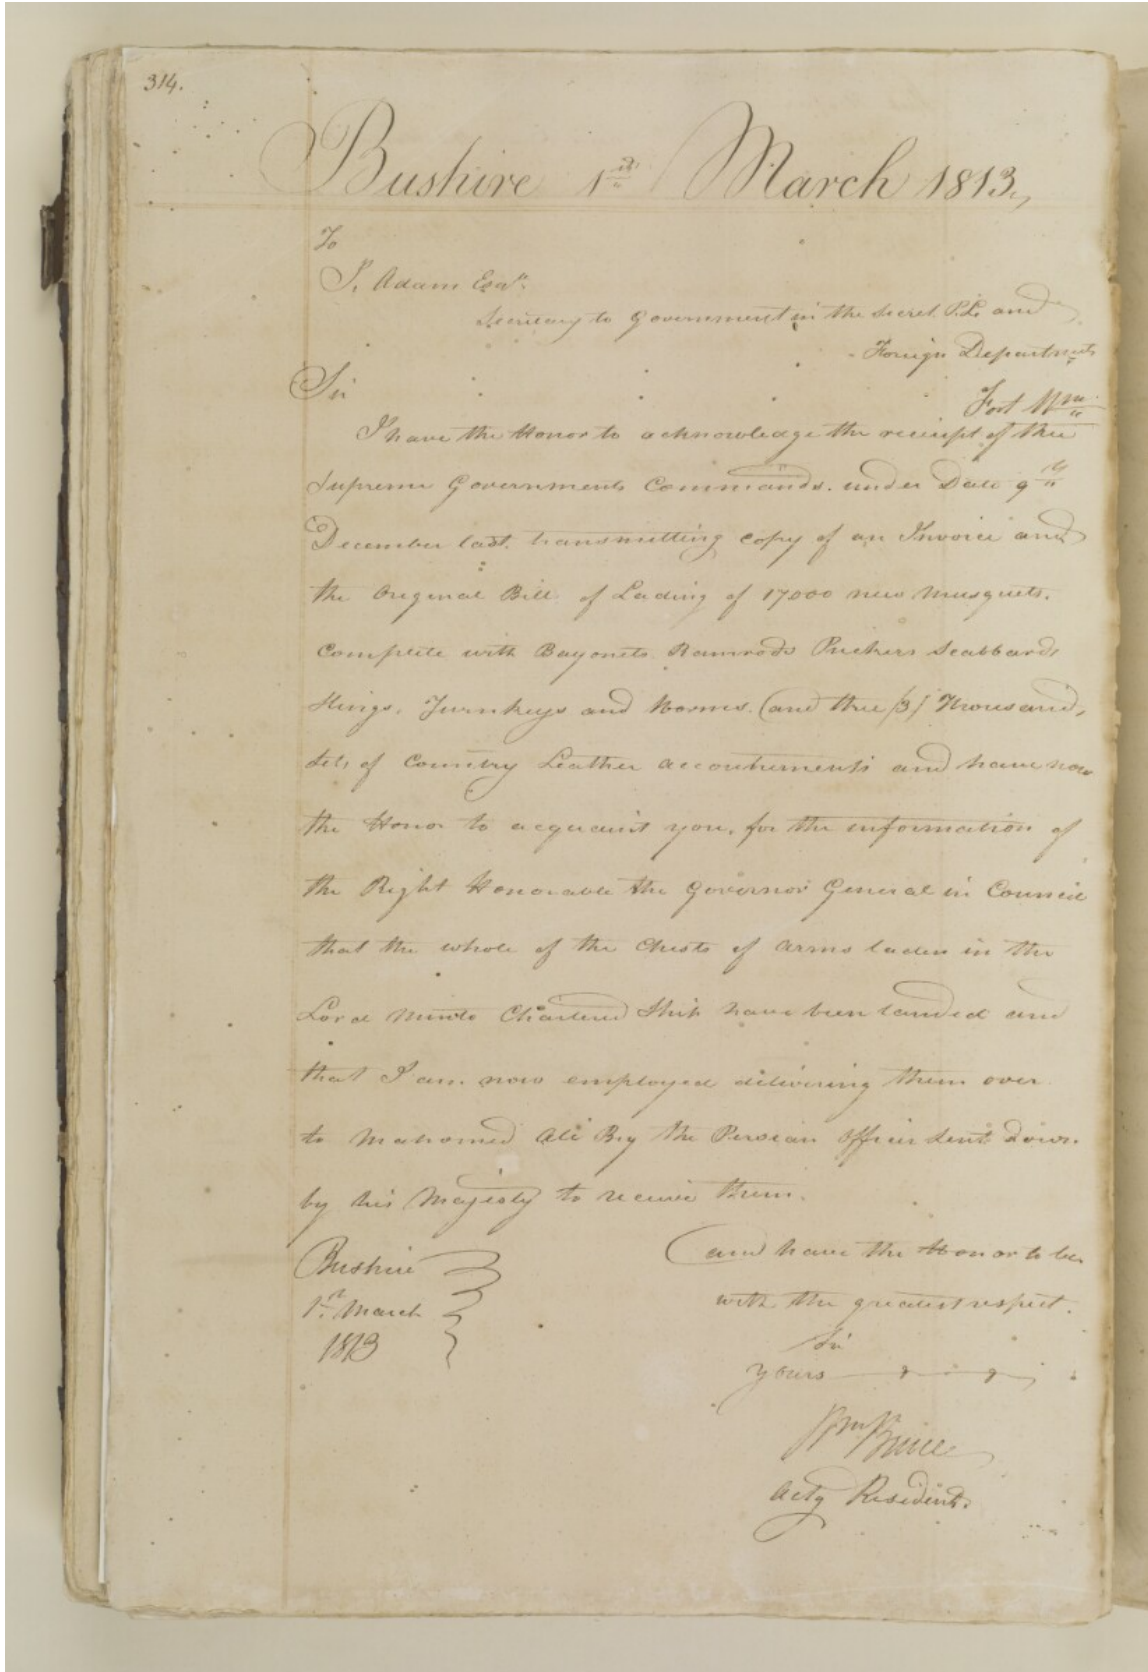 314.
Bushire 1st March 1813,
To
J. Adam Esqr.
Secretary to Government in the Secret P.L. and
Foreign Departments
Fort Wm.
Sir
I have the Honor to acknowledge the receipt of the
Supreme Governments Commands. under Date 9th
December last. transmitting copy of an Invoice and
the Original Bill of Lading of 17000 new Musquets.
Complete with Bayonets Ramrods Prickers Scabbards
Slings, Turnkeys and Worms. (and three /3/ Thousand,
Sets of Country Leather accoutrements and have now
the Honor to acquaint you, for the information of
the Right Honorable the Governor General in Council
that the whole of the Chests of Arms laden in the
Lord Minto Chartered Ship have been landed and
that I am now employed delivering them over
to Mahomed Ali Beg the Persian Officer sent down.
by his Majesty to receive them.
(and have the Honor to be
with the greatest respect.
Sir
yours
Bushire
1st March
1813
Wm Bruce
Actg Resident.